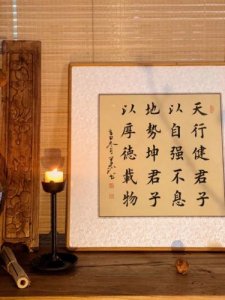 天行健君子
以自强不息
地势坤君子
以厚德载物